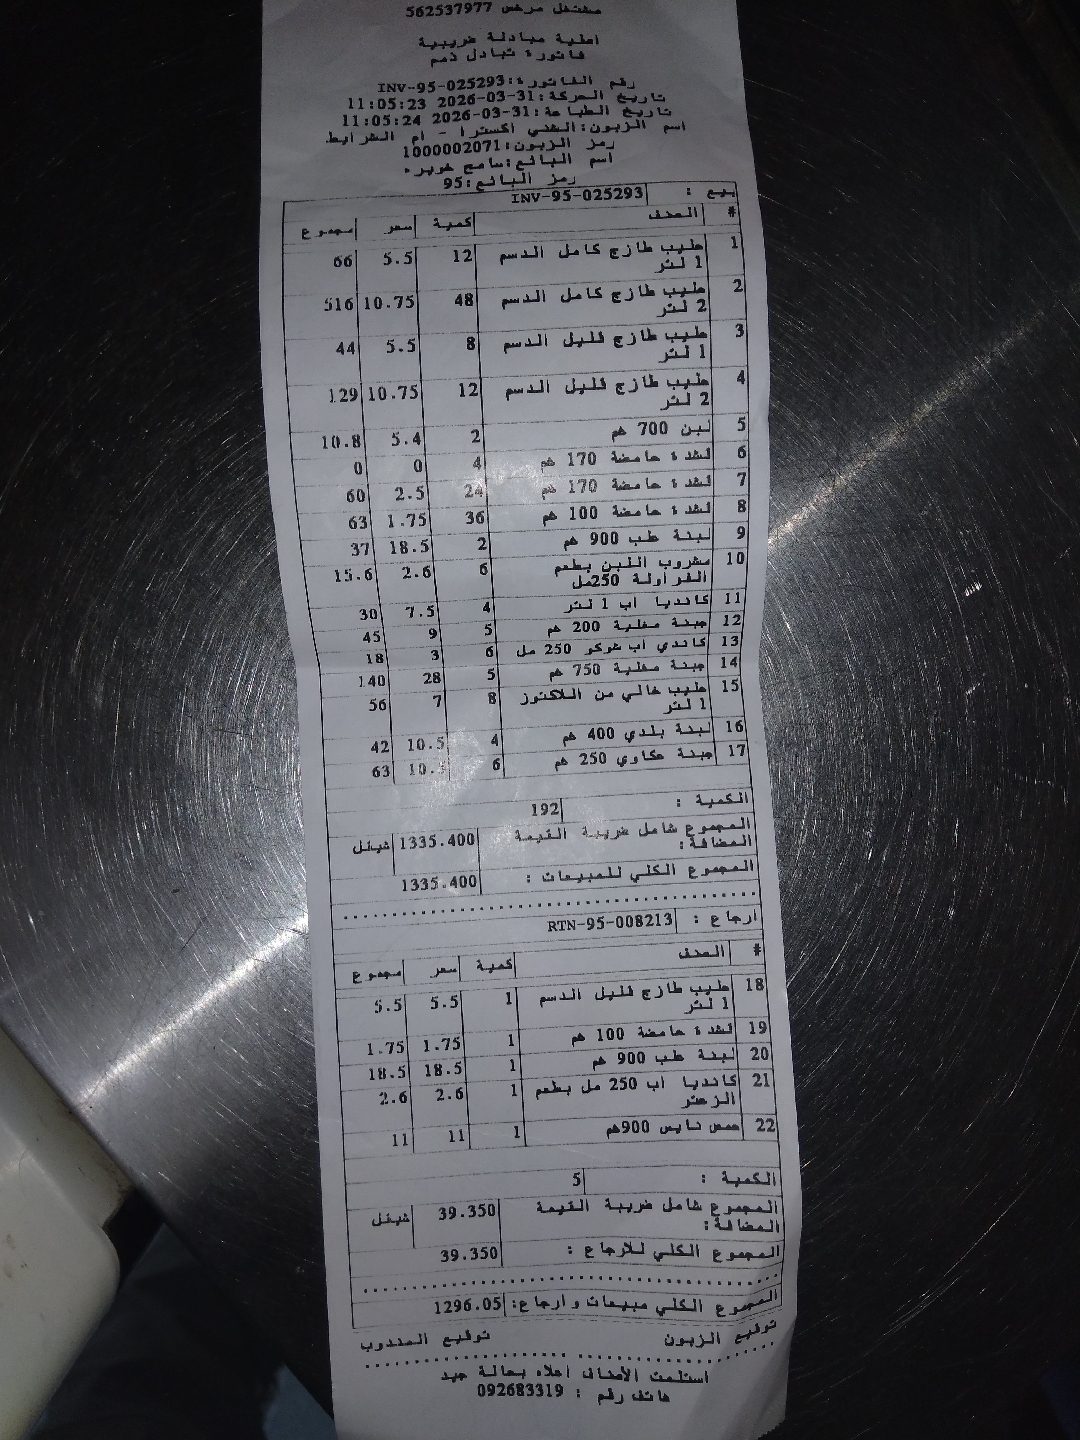 مشتغل مرخص 562537977
اصلية مبادلة ضريبية
فاتورة تبادل ذمم
رقم الفاتورة:INV-95-025293
تاريخ الحركة:31-03-2026 11:05:23
تاريخ الطباعة:31-03-2026 11:05:24
اسم الزبون:الشني اكسترا - ام الشرايط
رمز الزبون:1000002071
اسم البائع:سامح
رمز البائع:95
بيع : INV-95-025293
# الصنف كمية سعر مجموع
1 حليب طازج كامل الدسم 12 5.5 66
1 لتر
2 حليب طازج كامل الدسم 48 10.75 516
2 لتر
3 حليب طازج قليل الدسم 8 5.5 44
1 لتر
4 حليب طازج قليل الدسم 12 10.75 129
2 لتر
5 لبن 700 غم 2 5.4 10.8
6 قشدة حامضة 170 غم 4 0 0
7 قشدة حامضة 170 غم 24 2.5 60
8 قشدة حامضة 100 غم 36 1.75 63
9 لبنة علب 900 غم 2 18.5 37
10 مشروب اللبن بطعم 6 2.6 15.6
الفراولة 250مل
11 كانديا اب 1 لتر 4 7.5 30
12 جبنة مغلية 200 غم 5 9 45
13 كاندي اب شوكو 250 مل 6 3 18
14 جبنة مغلية 750 غم 5 28 140
15 حليب خالي من اللاكتوز 8 7 56
1 لتر
16 لبنة بلدي 400 غم 4 10.5 42
17 جبنة عكاوي 250 غم 6 10.5 63
الكمية : 192
المجموع شامل ضريبة القيمة 1335.400 شيقل
المضافة:
المجموع الكلي للمبيعات : 1335.400
ارجاع : RTN-95-008213
# الصنف كمية سعر مجموع
18 حليب طازج قليل الدسم 1 5.5 5.5
1 لتر
19 قشدة حامضة 100 غم 1 1.75 1.75
20 لبنة علب 900 غم 1 18.5 18.5
21 كانديا اب 250 مل بطعم 1 2.6 2.6
الزعتر
22 حمص نايس 900غم 1 11 11
الكمية : 5
المجموع شامل ضريبة القيمة 39.350 شيقل
المضافة:
المجموع الكلي للارجاع : 39.350
المجموع الكلي مبيعات وارجاع: 1296.05
توقيع الزبون توقيع المندوب
استلمت الأصناف اعلاه بحالة جيد
هاتف رقم : 092683319